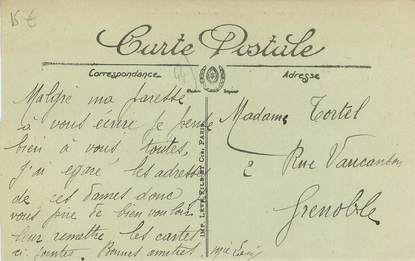 15 €
Carte Postale
Correspondance
Adresse
Malgré ma paresse
à vous écrire je pense
bien à vous toutes,
j'ai egaré les adresses
de ces dames donc
vous prie de bien vouloir
leur remettre les cartes
ci jointes. Bonnes amitiés
IMP. LÉVY FILS ET CIE, PARIS
Madame Tortel
2 Rue Vaucanson
Grenoble